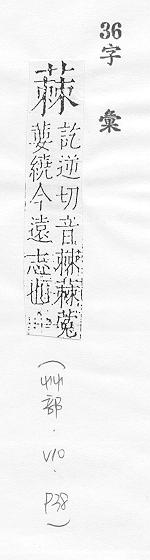 36
字彙
蕀
訖逆切音棘蕀蒬
葽繞今遠志也
(艸部.V10.P38)